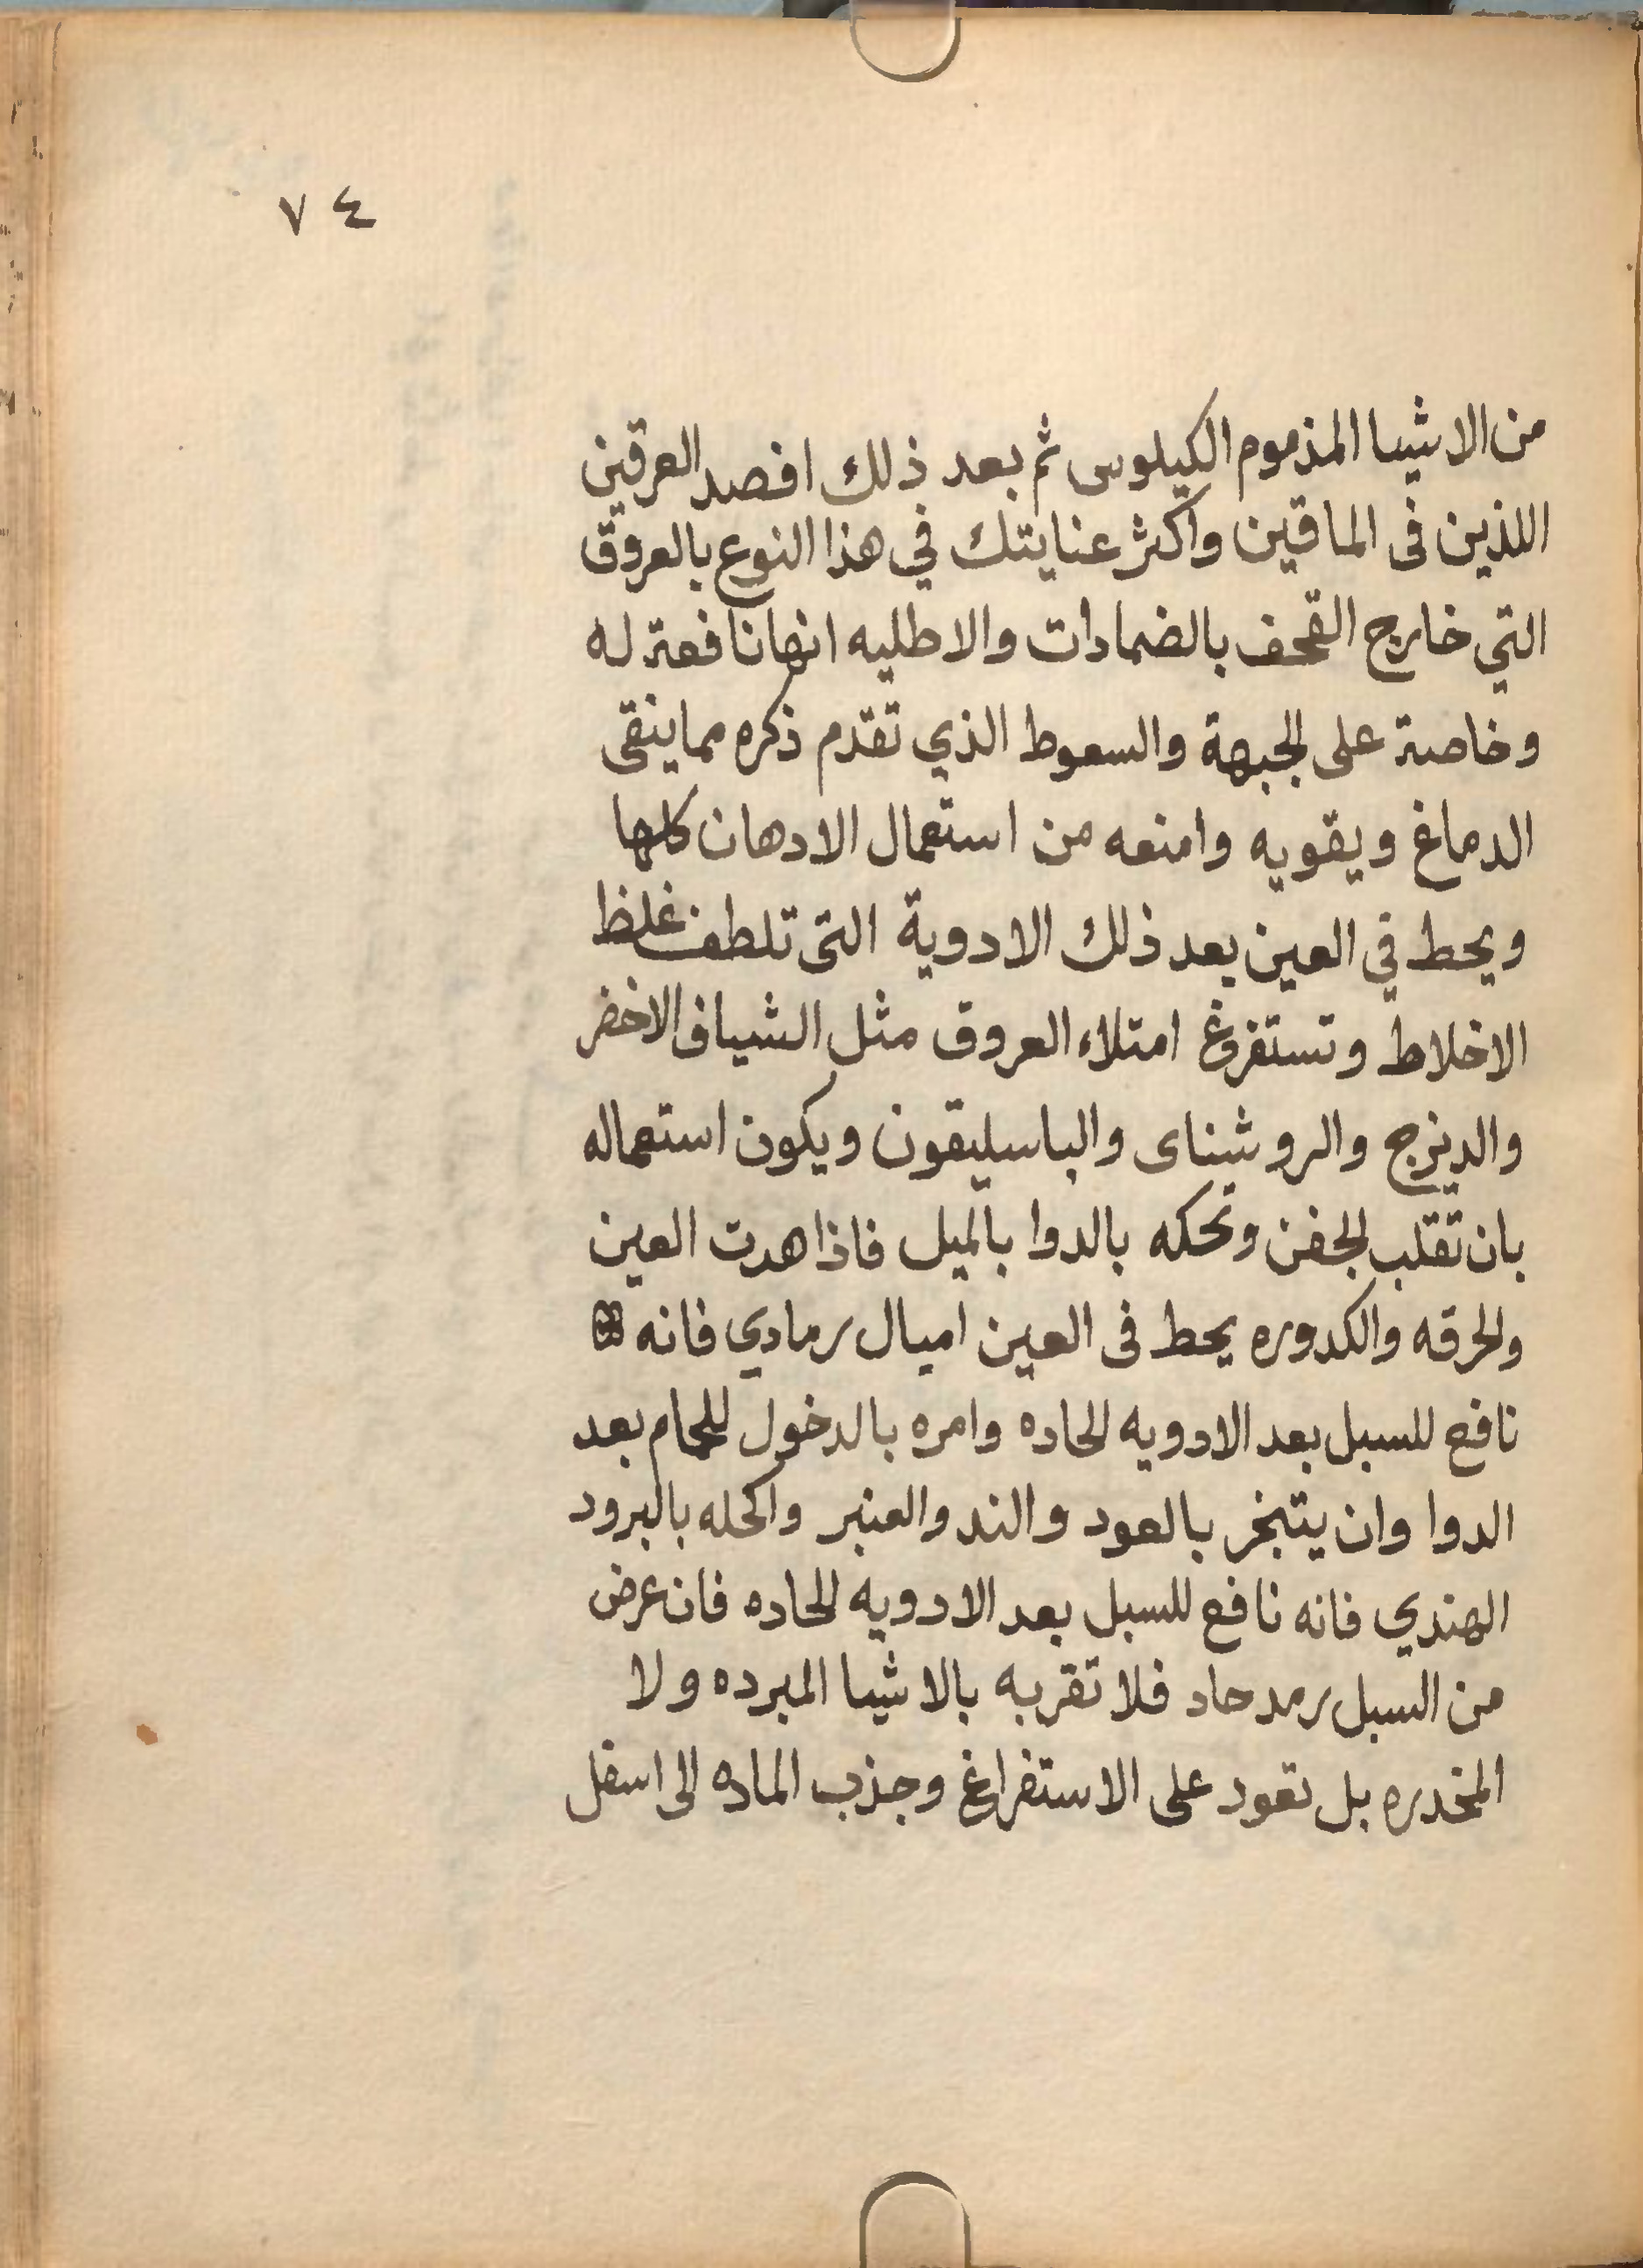 ٧٤
من الاشيا المذموم الكيلوس ثم بعد ذلك افصد العرقين
اللذين فى الماقين واكثر عنايتك في هذا النوع بالعروق
التي خارج القحف بالضمادات والاطليه انها نافعة له
وخاصة على الجبهة والسعوط الذي تقدم ذكره مما ينقى
الدماغ ويقويه وامنعه من استعمال الادهان كلها
ويحط في العين بعد ذلك الادوية التى تلطف غلظ
الاخلاط وتستفرغ امتلاء العروق مثل الشياف الاخضر
والدينزج والروشناى والباسليقون ويكون استعماله
بان تقلب الجفن وتحكه بالدوا بالميل فاذا هدت العين
والحرقه والكدوره يحط فى العين اميال رمادي فانه
نافع للسبل بعد الادويه الحاده وامره بالدخول للحمام بعد
الدوا وان يتبخر بالعود والند والعنبر واكحله بالبرود
الهندي فانه نافع للسبل بعد الادويه الحاده فان عرض
من السبل رمد حاد فلا تقربه بالاشيا المبرده ولا
المخدره بل تعود على الاستفراغ وجذب الماده الى اسفل